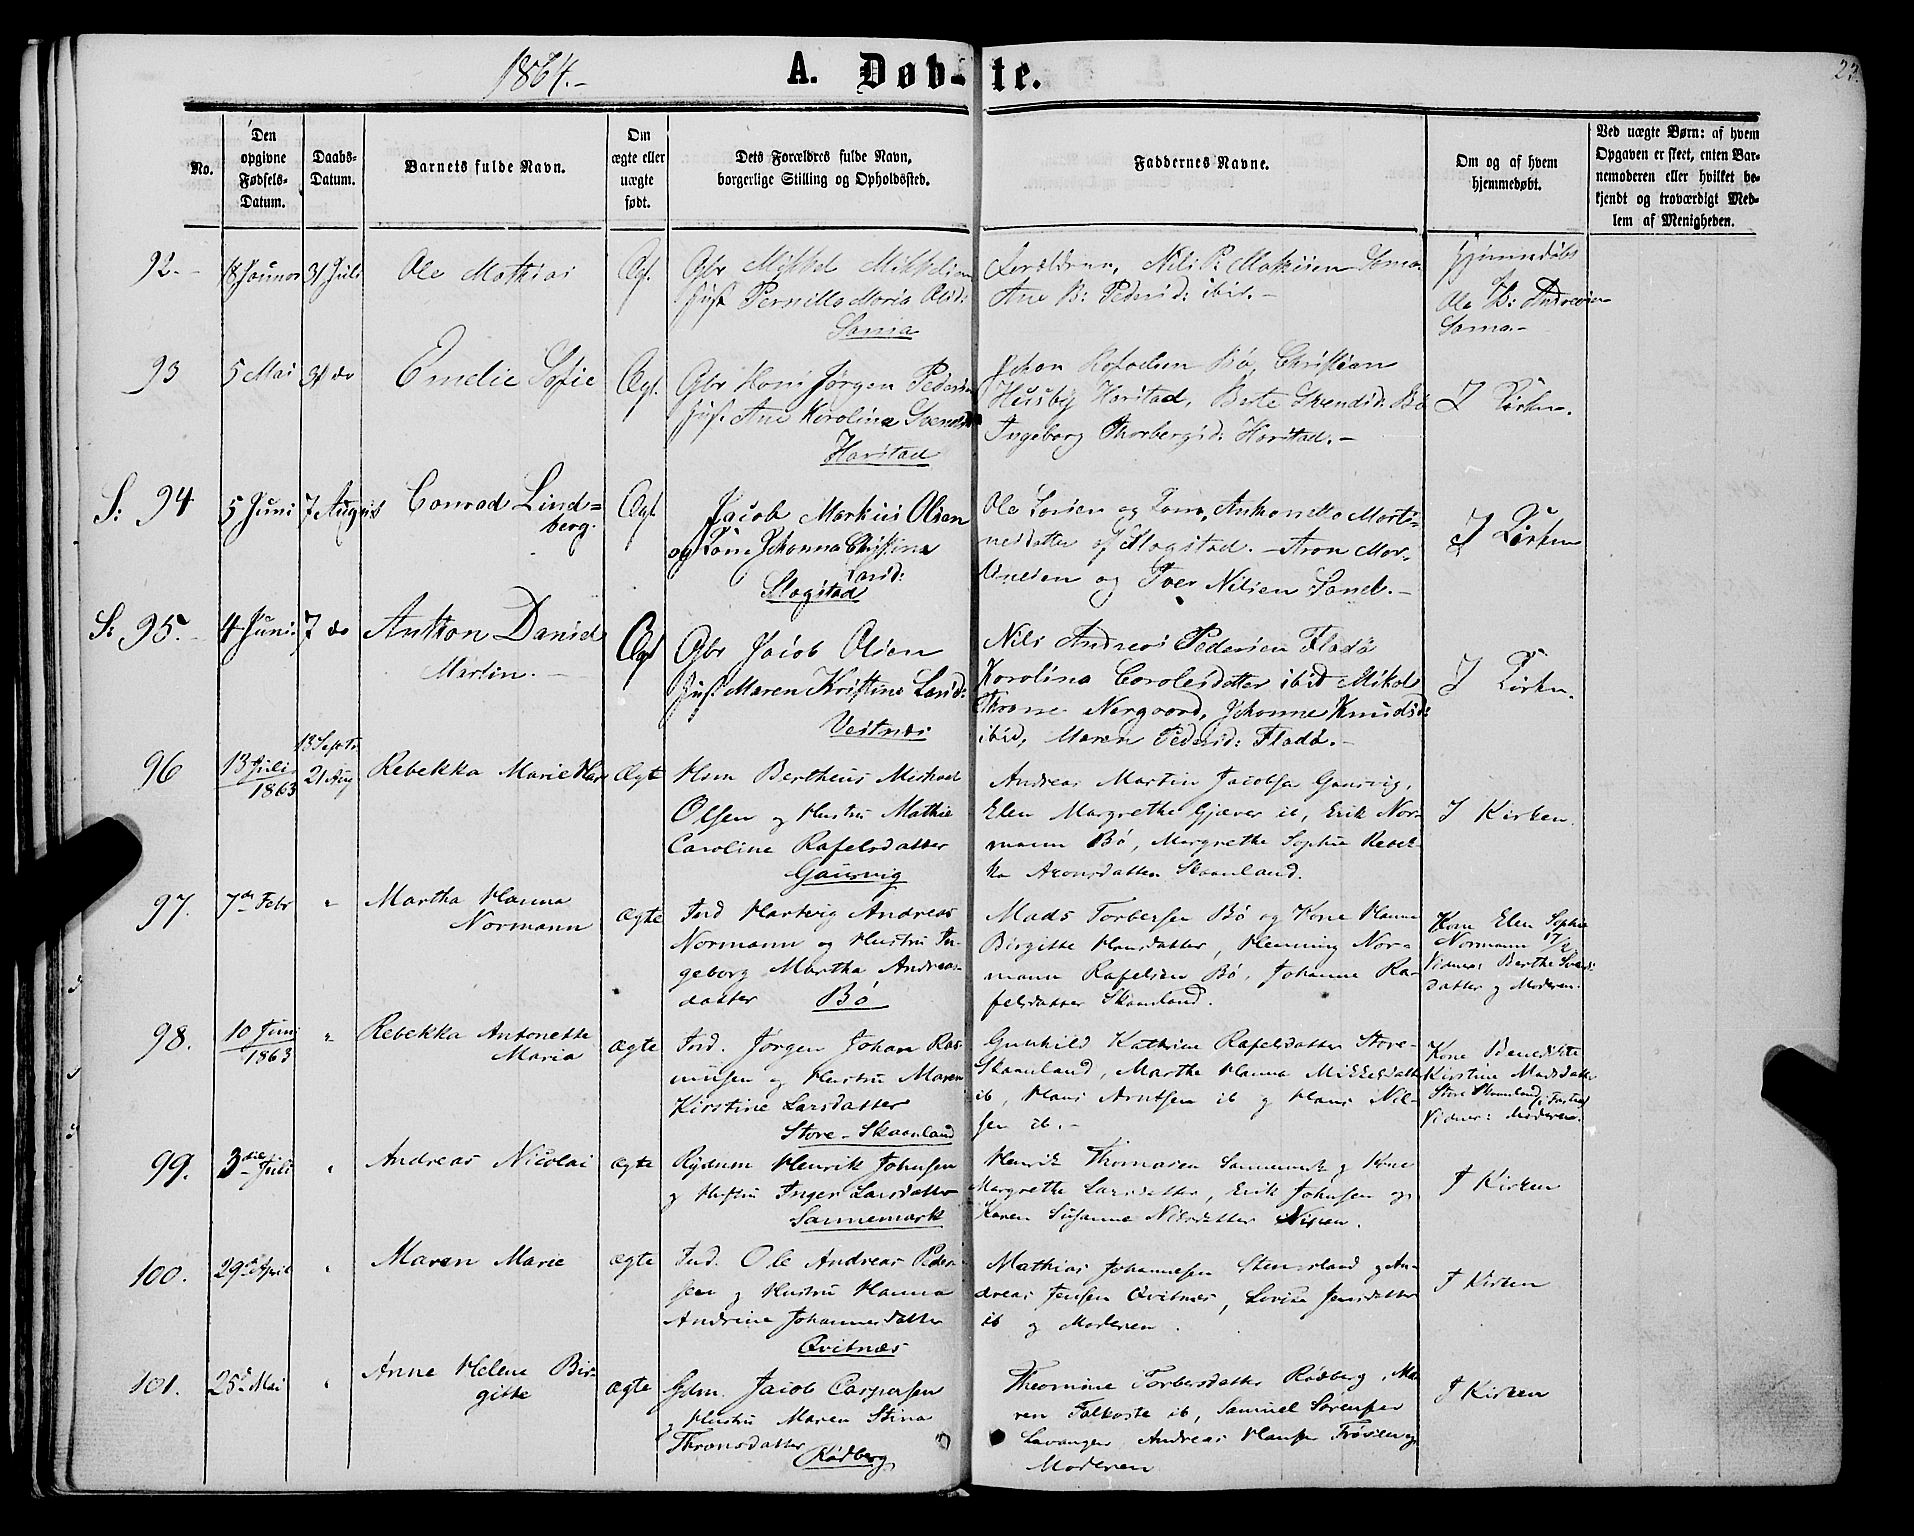 1864.-
A. Døb-te.
23.
No.
Den
opgivne
Fødsels-
Datum.
Daabs-
Datum.
Barnets fulde Navn.
Om
ægte eller
uægte
født.
Dets Forældres fulde Navn,
borgerlige Stilling og Opholdssted.
Faddernes Navne.
Om og af hvem
hjemmedøbt.
Ved uægte Børn: af hvem
Opgaven er skeet, enten Bar-
nemoderen eller hvilket be-
kjendt og troværdigt Med-
lem af Menigheden.
92.- 31 Juli Ole Mathias Mikkel Mikkelsen
Pernille Maria Olsd:
Sama
Ane B: Pedersd: ibid.-
Hjemmedøbt
Ole
Sama.-
93 5 Mai 31 do Emelie Sofie Ægt. Gbr Hans Jørgen Pedersen
Hust Ane Karolina Svendsd
Harstad
Johan Rafaelsen Bø, Christian
Husby Harstad, Berte Svendsd: Bø
Ingeborg Thorbergsd: Harstad.-
I Kirken.
S: 94 5 Juni 7 August Conrad Lind=
berg.
Ægt Jacob Markus Olsen
og Kone Johanna Christina
Larsd:
Slagstad
Ole Larsen og Kone, Anthonette Morti-
nesdatter af Slagstad.- Aron Mor-
tinesen og Iver Nilsen Sand.-
I Kirken
S: 95.- 4 Juni 7 do Anthon Daniel
Martin.-
Ægt Gbr Jacob Olsen
Hust Maren Kristine Larsd:
Vestnæs
Nils Andreas Pedersen Fladø
Karolina Carolesdatter ibid Mikal
Throne Nergaard, Johanne Knudsd:
ibid, Maren Pedersd: Fladø.-
I Kirken.
96 13 Juli
1863
18 Septr
21 Aug
Rebekka Marie Ægte Hsm Bertheus Michael
Olsen og Hustru Mathie
Caroline Rafelsdatter
Gausvig
Andreas Martin Jacobsen Gausvig,
Elen Margrethe Gjæver ib, Erik Nor-
mann Bø, Margrethe Sophie Rebek-
ka Aronsdatter Skaanland.
I Kirken.
97. 7de Febr " Martha Hanna
Normann
Ægte Ind Hartvig Andreas
Normann og Hustru In-
geborg Martha Andreas-
datter Bø
Mads Torbersen Bø og Kone Hanna
Birgitte Hansdatter, Henning Nor-
mann Rafelsen Bø, Johanne Ra-
felsdatter Skaanland.
Kone Elen Sophie
Normann
Vidner: Berthe Svends
datter og Moderen.
98. 10 Juni
1863
" Rebekka Antonette
Maria
ægte Ind. Jørgen Johan Ras-
musen og Hustru Maren
Kirstine Larsdatter
Store-Skaanland
Gunhild Kathrine Rafelsdatter Store-
Skaanland, Marthe Hanna Mikkelsdatter
ib, Hans Arntsen ib og Hans Nil-
sen ib.-
Kone Benedikte
Kirstine Madsdatter
Store Skaanland,
Vidner: Moderen.
99. 3die Juli " Andreas Nicolai ægte Rydnm Henrik Johnsen
og Hustru Inger Larsdatter
Sannemark
Henrik Thomasen Sannemark og Kone
Margrethe Larsdatter, Erik Johnsen og
Karen Susanne Nilsdatter
I Kirken
100. 29de April " Maren Marie ægte Ind. Ole Andreas Peder-
sen og Hustru Hanna
Andrine Johannesdatter
Qvitnæs
Mathias Johannesen Stensland og An-
dreas Jensen Qvitnæs, Lovise Jensdatter
ib og Moderen.
I Kirken
101. 25de Mai " Anne Helene Bir-
gitte
ægte Gdm. Jacob Caspersen
og Hustru Maren Stina
Thronsdatter
Rødberg
Theomine Torbersdatter Rødberg, Ma-
ren Falkoste ib, Samuel Sørensen
Lavangen, Andreas Hansen og
Moderen
I Kirken